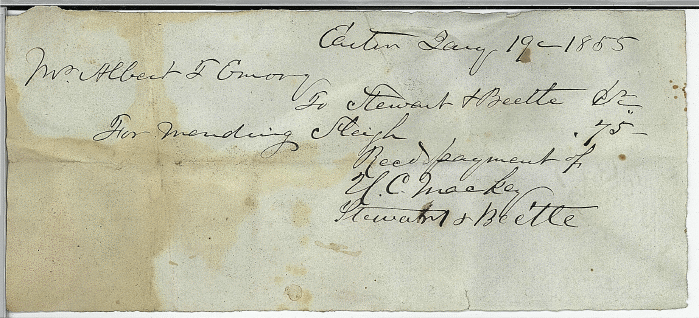 Easton Jany 19 - 1855
Mr Albert F Emory
To Stewart & Beetle Dr
For Mending Sleigh .75
Recd payment of
H. C. Mackey
Stewart & Beetle